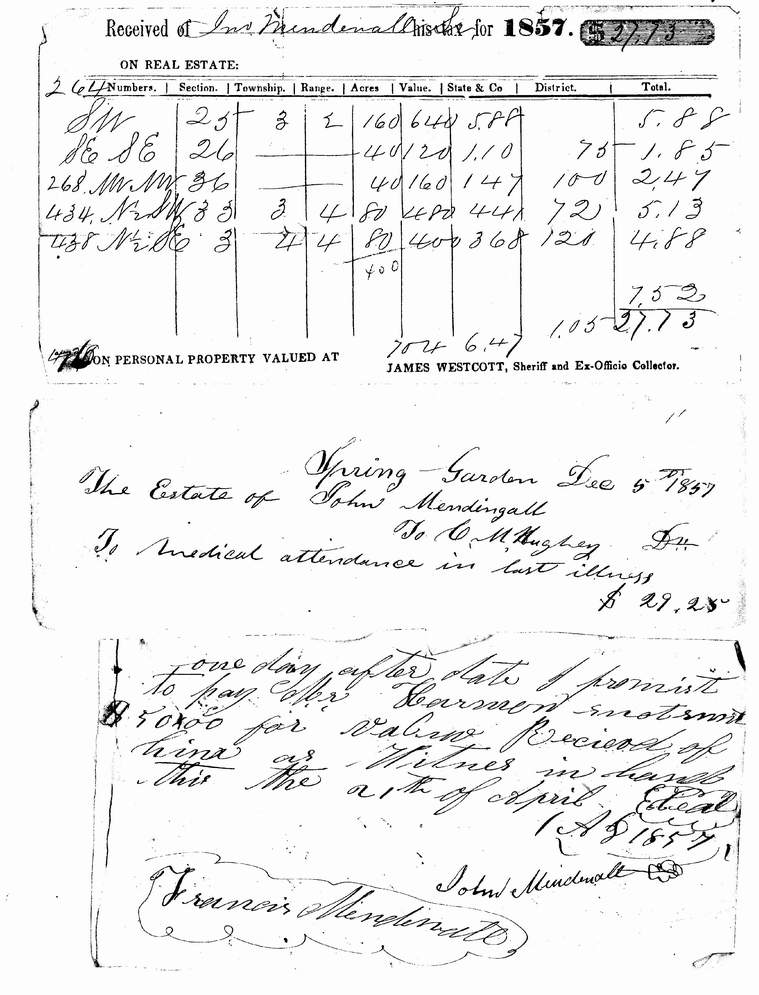 Received of Jno Mendenall his tax for 1857. $ 27,73
ON REAL ESTATE:
264 Numbers. | Section. | Township. | Range. | Acres | Value. | State & Co | District. | Total.
SW 25 3 2 160 640 5.88 5.88
SE SE 26 40 120 1.10 75 1.85
268 NW NW 36 40 160 147 100 2.47
434 N½ SW 33 3 4 80 480 441 72 5.13
438 N½ SE 3 4 4 80 400 368 120 4.88
400
7,52
704 6.47 1.05 27.73
ON PERSONAL PROPERTY VALUED AT
JAMES WESTCOTT, Sheriff and Ex-Officio Collector.
Spring-Garden Dec 5th 1857
The Estate of John Mendingall
To C. M. Hughey Dr
To Medical attendance in last illness
$ 29.25
one day after date I promist
to pay Mr Harmon
$50.00 for Valuw Recievd of
him as Witnes in hand
this the 21th of April Seal
AD 1857
John Mendenall
Francis Mendenall